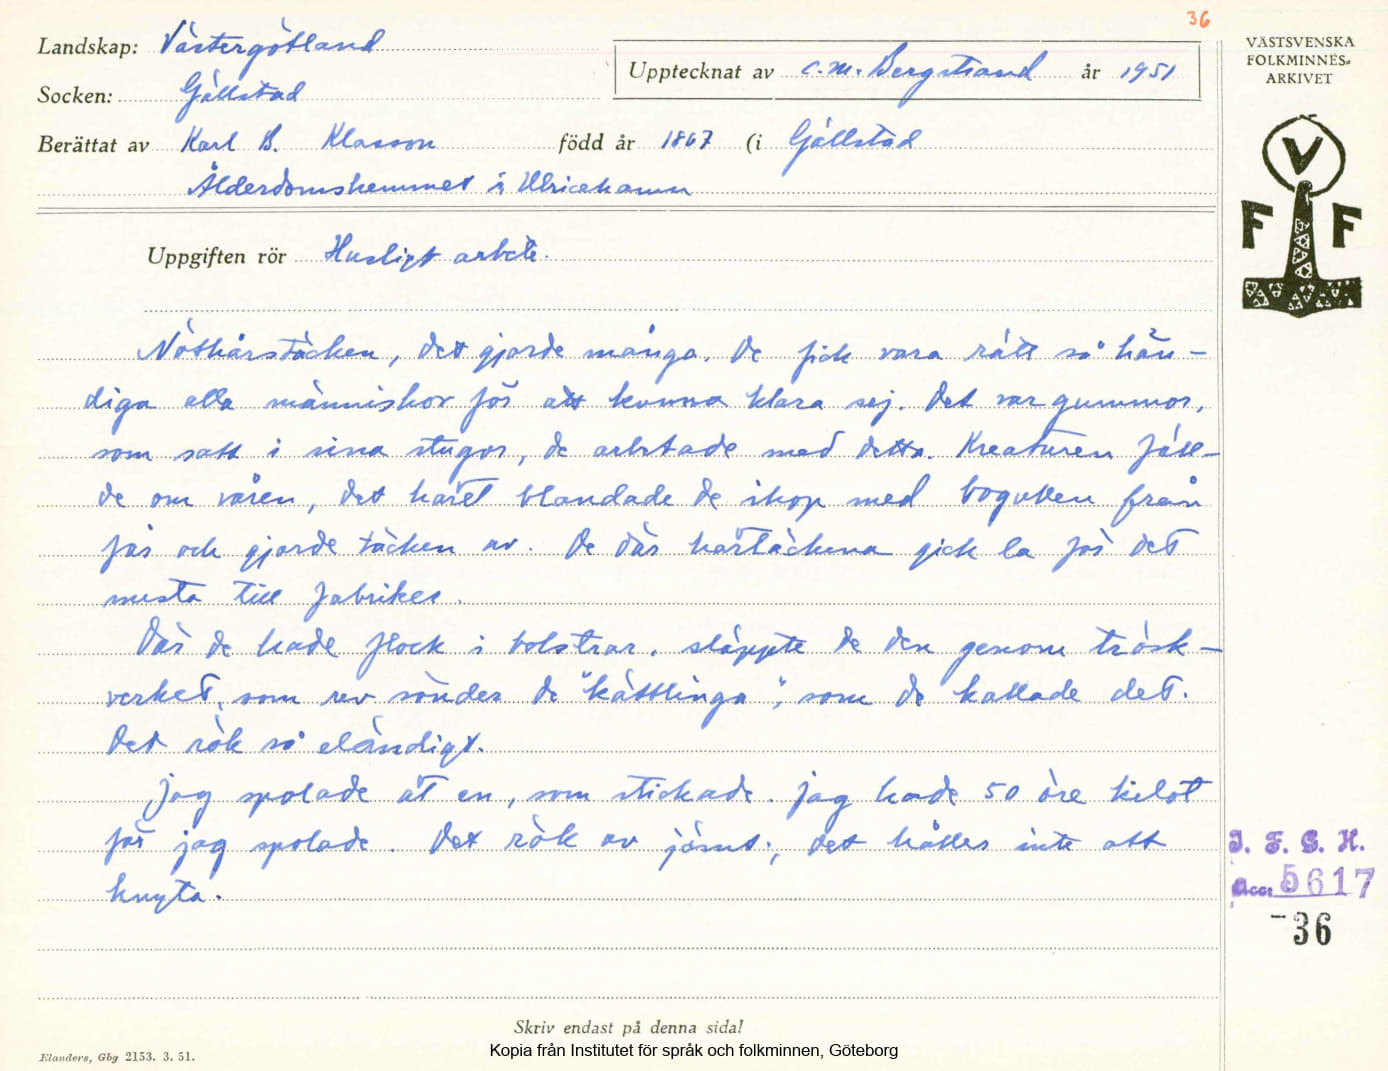 36
Landskap: Västergötland
Upptecknat av C. M. Bergstrand år 1951
Socken: Gällstad
Berättat av Karl B. Klasson född år 1867 (i Gällstad
Ålderdomshemmet i Ulricehamn
VÄSTSVENSKA
FOLKMINNES-
ARKIVET
V
F F
Uppgiften rör Husligt arbete.
Nöthårstäcken, det gjorde många. De fick vara rätt så hän-
diga alla människor för att kunna klara sej. Det var gummor,
som satt i sina stugor, de arbetade med detta. Kreaturen fäll-
de om våren, det håret blandade de ihop med bogullen från
får och gjorde täcken av. De där hårtäckena gick la för det
mesta till fabriker.
Där de hade flock i bolstrar, släppte de den genom trösk-
verket, som rev sönder de "kättlinga", som de kallade det.
Det rök så eländigt.
Jag spolade åt en, som stickade. Jag hade 50 öre kilot
för jag spolade. Det rök av jämt; det håller inte att
knyta.
I. F. G. H.
Acc. 5617
-36
Skriv endast på denna sida!
Elanders, Gbg 2153. 3. 51.
Kopia från Institutet för språk och folkminnen, Göteborg